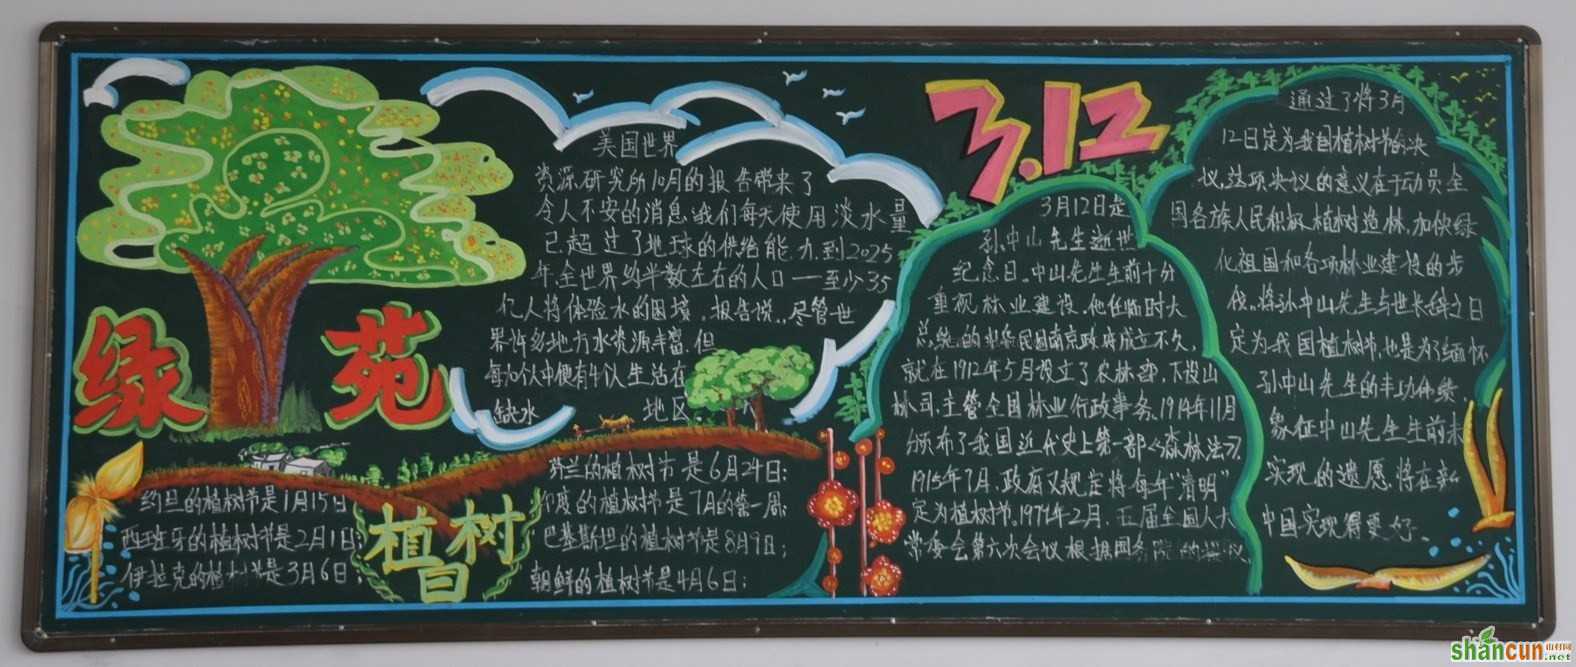 绿苑
美国世界
资源研究所10月的报告带来了
令人不安的消息,我们每天使用淡水量
已超过了地球的供给能力,到2025
年,全世界约半数左右的人口——至少35
亿人将体验水的困境。报告说,尽管世
果许多地方水资源丰富,但
每10个人中便有4个人生活在
缺水 地区
约旦的植树节是1月15日
西班牙的植树节是2月1日;
伊拉克的植树节是3月6日;
植树
日
芬兰的植树节是6月24日;
印度的植树节是7月的第一周;
巴基斯坦的植树节是8月9日;
朝鲜的植树节是4月6日;
3.12
3月12日是
孙中山先生逝世
纪念日。中山先生生前十分
重视林业建设。他任临时大
总统的中华民国南京政府成立不久,
就在1912年5月设立了农林部,下设山
林司,主管全国林业行政事务。1914年11月
颁布了我国近代史上第一部《森林法》。
1915年7月,政府又规定将每年"清明"
定为植树节。1979年2月,五届全国人大
常委会第六次会议根据国务院的提议
通过了将3月
12日定为我国植树节的决
议,这项决议的意义在于动员全
国各族人民积极植树造林,加快绿
化祖国和各项林业建设的步
伐。将孙中山先生与世长辞之日
定为我国植树节,也是为了缅怀
孙中山先生的丰功伟绩,
象征中山先生生前未
实现的遗愿将在新
中国实现得更好。
shancun
山村网
.net